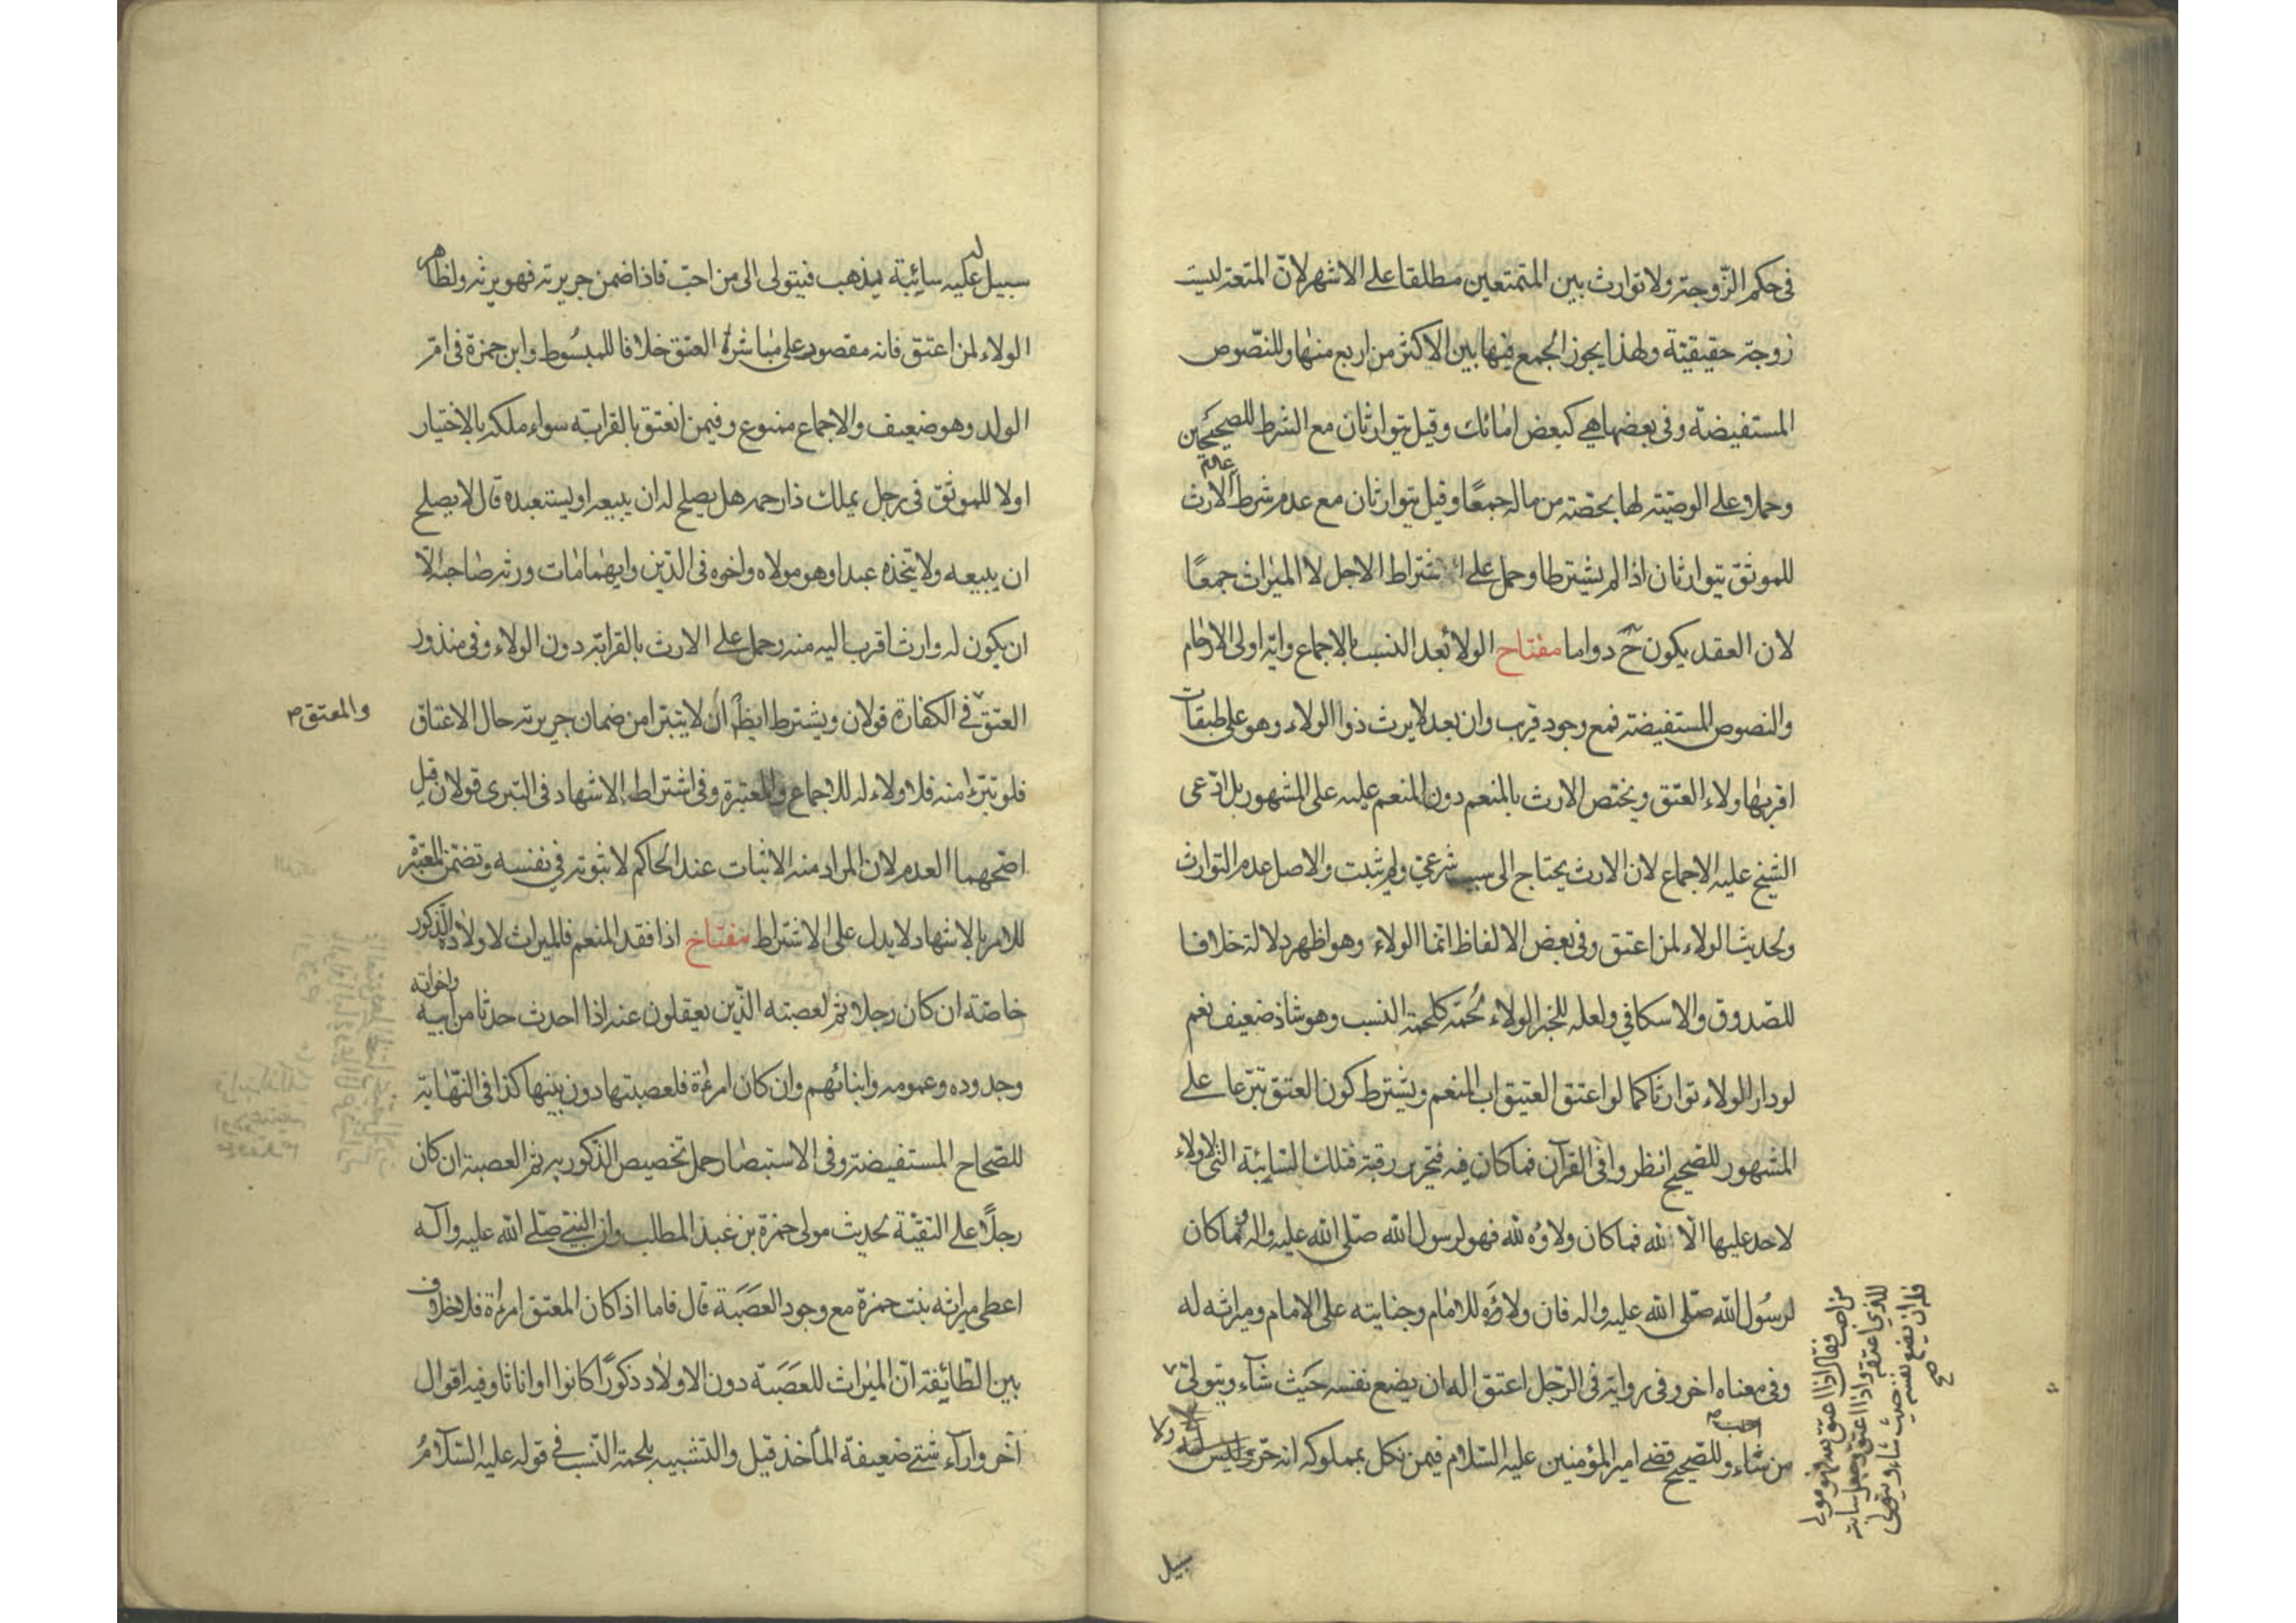 في حكم الزّوجة ولا توارث بين المتمتعين مطلقا على الاشهر لانّ المتعة ليست
زوجة حقيقية ولهذا يجوز الجمع فيها بين الاكثر من اربع منها وللنّصوص
المستفيضة وفي بعضها هي كبعض امائك وقيل يتوارثان مع الشرط للصحيحين
وحملا على الوصيّة لها بحصّة من ماله جمعًا وقيل يتوارثان مع عدم شرط الارث
للموثق يتوارثان اذا لم يشترطا وحمل على اشتراط الاجل لا الميراث جمعًا
لان العقد يكون ح دواما مفتاح الولا بعد النسب بالاجماع واية اولى الارحام
والنصوص المستفيضة فمع وجود قريب وان بعد لا يرث ذوا الولاء وهو على طبقات
اقربها ولاء العتق ويختص الارث بالمنعم دون المنعم عليه على المشهور بل ادّعى
الشيخ عليه الاجماع لان الارث يحتاج الى سبب شرعي ولم يثبت والاصل عدم التوارث
ولحديث الولاء لمن اعتق وفي بعض الالفاظ انما الولاء وهو اظهر دلالة خلافا
للصّدوق والاسكافي ولعله للخبر الولاء لُحمة كلحمة النسب وهو شاذ ضعيف نعم
لو دار الولاء توارثا كما لو اعتق العتيق اب المنعم ويشترط كون العتق تبرّعا على
المشهور للصحيح انظروا في القرآن فما كان فيه فتحرير رقبة فتلك السّايبة التي لا ولاء
لاحد عليها الّا لله فما كان ولاؤه لله فهو لرسول الله صلّى الله عليه واله وما كان
لرسُول الله صلّى الله عليه واله فان ولاؤه للامام وجنايته على الامام وميراثه له
وفي معناه اخر وفي رواية في الرّجل اعتق اله ان يضع نفسه حيث شآء ويتولى
من شاء وللصّحيح قضى امير المؤمنين عليه السّلام فيمن نكل بمملوكه انه حرّ
احب
من احب فقال اذا اعتق لله فهو مولى
للذي اعتقه واذا اعتق وجعل سايبة
فله ان يضع نفسه حيث شاء ويتولى
صح
سبيل
سبيل له عليه سائبة يذهب فيتولى الى من احبّ فاذا ضمن جريرته فهو يرثه ولظاهر
الولاء لمن اعتق فانه مقصور على مباشرة العتق خلافا للمبسُوط وابن حمزة في امّ
الولد وهو ضعيف والاجماع ممنوع وفيمن انعتق بالقرابة سواء ملكه بالاختيار
اولا للموثق في رجل يملك ذا رحمه هل يصلح له ان يبيعه او يستعبده قال لا يصلح
ان يبيعه ولا يتخذه عبدا وهو مولاه واخوه في الدّين وايهما مات ورثه صاحبه الّا
ان يكون له وارث اقرب اليه منه وحمل على الارث بالقرابة دون الولاء وفي منذور
العتق في الكفارة قولان ويشترط ايضًا ان لا يتبرا من ضمان جريرته حال الاعتاق
والمعتق م
فلو تبرّء منه فلا ولاء له للاجماع وللمعتبرة وفي اشتراط الاشهاد في التبرى قولان قيل
اصحّهما العدم لان المراد منه الاثبات عند الحاكم لا ثبوته في نفسه وتضمن المعتبرة
للامر بالاشهاد لا يدل على الاشتراط مفتاح اذا فقد المنعم فالميراث لاولاده الذكور
خاصّة ان كان رجلا ثم لعصبته الذّين يعقلون عنه اذا احدث حدثا من ابيه واخوانه
وجدوده وعمومه وابنائهم وان كان امرءة فلعصبتها دون بنيها كذا في النّهاية
للصّحاح المستفيضة وفي الاستبصار حمل تخصيص الذكور به ثم العصبة ان كان
رجلًا على التقيّة لحديث مولى حمزة بن عبد المطلب وان النبي صلّى الله عليه وآله
اعطى ميراثه بنت حمزة مع وجود العصَبَة قال فاما اذا كان المعتق امرءة فلا خلاف
بين الطّائفة انّ الميراث للعصَبَة دون الاولاد ذكورًا كانوا او اناثا وفيه اقوال
آخر وارآء شتى ضعيفة المأخذ قيل والتشبيه بلحمة النّسب في قوله عليه السّلامُ